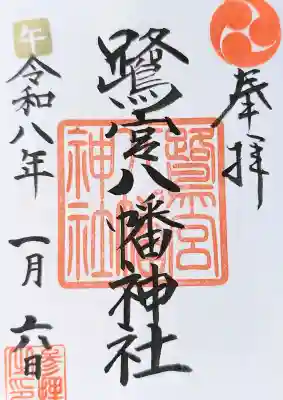 奉拝
鷺宮八幡神社
鷺宮
八幡
神社
午
令和八年
一月六日
参拝